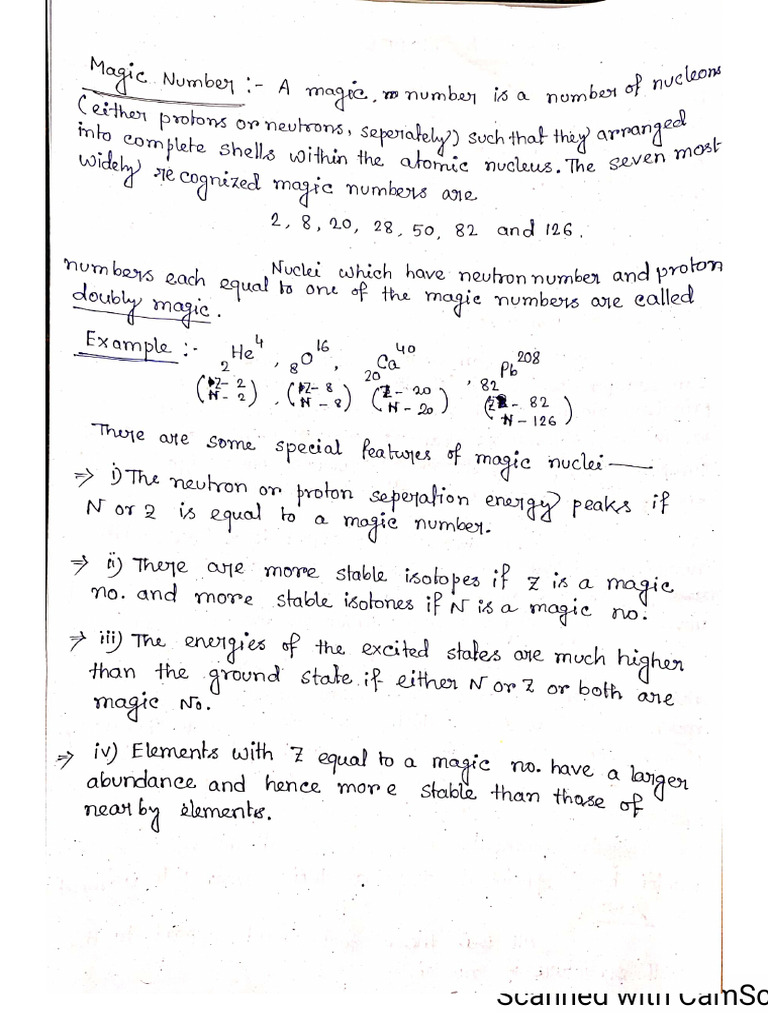 Magic Number :- A magic, number is a number of nucleons
(either protons or neutrons, seperately) such that they arranged
into complete shells within the atomic nucleus. The seven most
widely recognized magic numbers are
2, 8, 20, 28, 50, 82 and 126.
Nuclei which have neutron number and proton
numbers each equal to one of the magic numbers are called
doubly magic.
Example :- ₂He⁴, ₈O¹⁶, ₂₀Ca⁴⁰, ₈₂Pb²⁰⁸
(Z- 2 , (Z- 8 (Z- 20 (Z- 82
N- 2) N- 8) N- 20) N- 126)
There are some special features of magic nuclei —
⇒ i) The neutron or proton seperation energy peaks if
N or Z is equal to a magic number.
⇒ ii) There are more stable isotopes if Z is a magic
no. and more stable isotones if N is a magic no.
⇒ iii) The energies of the excited states are much higher
than the ground state if either N or Z or both are
magic No.
⇒ iv) Elements with Z equal to a magic no. have a larger
abundance and hence more stable than those of
nearby elements.
Scanned with CamSc